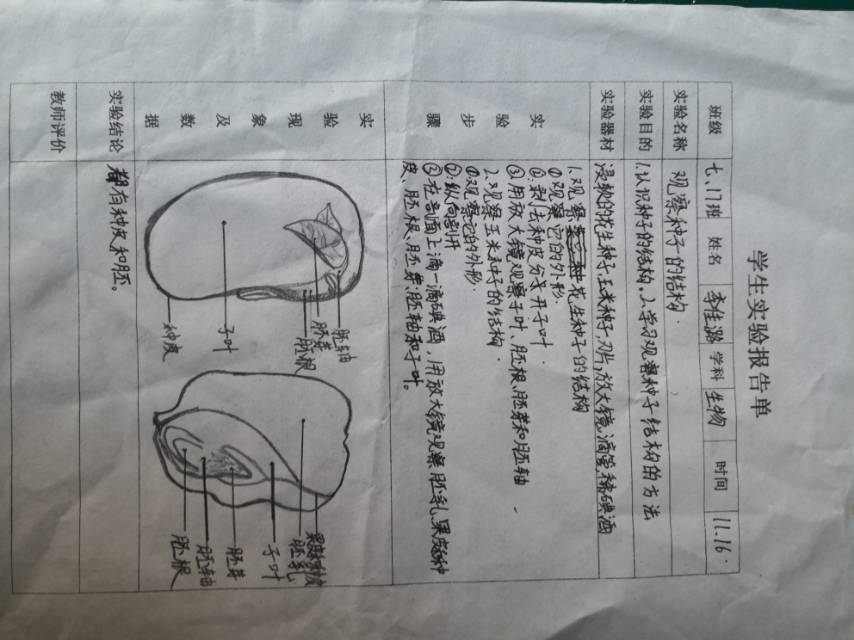 学生实验报告单
班级 七、17班 姓名 李佳潞 学科 生物 时间 11.16.
实验名称 观察种子的结构.
实验目的 1.认识种子的结构。2.学习观察种子结构的方法
实验器材 浸软的花生种子,玉米种子,刀片,放大镜,滴管,稀碘酒
实验步骤
1.观察花生种子的结构
①观察它的外形.
②.剥去种皮,分开子叶.
③用放大镜观察子叶、胚根、胚芽和胚轴
2.观察玉米种子的结构.
①观察它的外形.
②.纵向剖开
③在剖面上滴一滴碘酒,用放大镜观察胚乳,果皮和种
皮、胚根、胚芽、胚轴和子叶。
实验现象及数据
胚轴
胚芽
胚根
子叶
种皮
果皮和种皮
胚乳
子叶
胚芽
胚轴
胚根
实验结论 都有种皮和胚。
教师评价